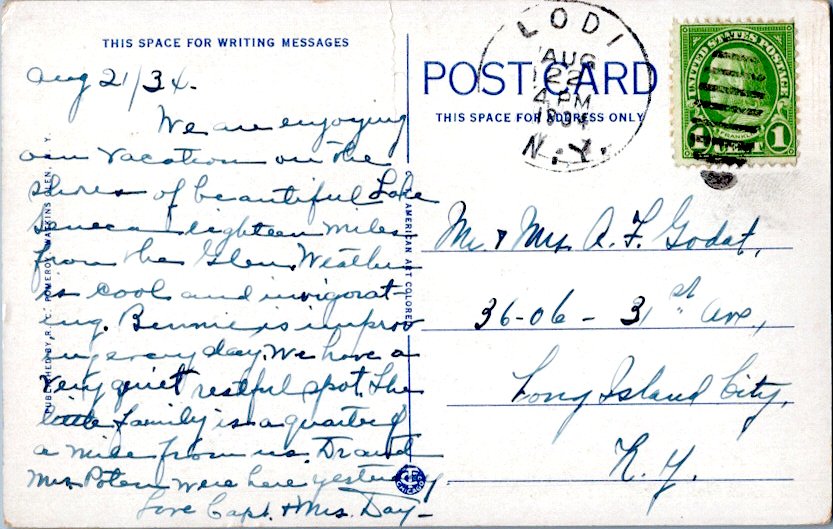 THIS SPACE FOR WRITING MESSAGES
Aug 21/34.
We are enjoying
our vacation on the
shores of beautiful Lake
Seneca eighteen miles
from the Glen. Weather
is cool and invigorat-
ing. Bennie is improv
ing every day. We have a
very quiet restful spot. The
little family is a quarter of
a mile from us. Dr and
Mrs. were here yesterday
Love Capt. & Mrs. Day-
PUBLISHED BY R. C. POMEROY, WATKINS GLEN, N. Y.
AMERICAN ART COLORED
LODI
AUG
22
4 PM
1934
N.Y.
POST CARD
THIS SPACE FOR ADDRESS ONLY
UNITED STATES POSTAGE
FRANKLIN
1 1
Mr. & Mrs. A. F. Godat,
36-06 - 31st Ave.,
Long Island City,
N. Y.